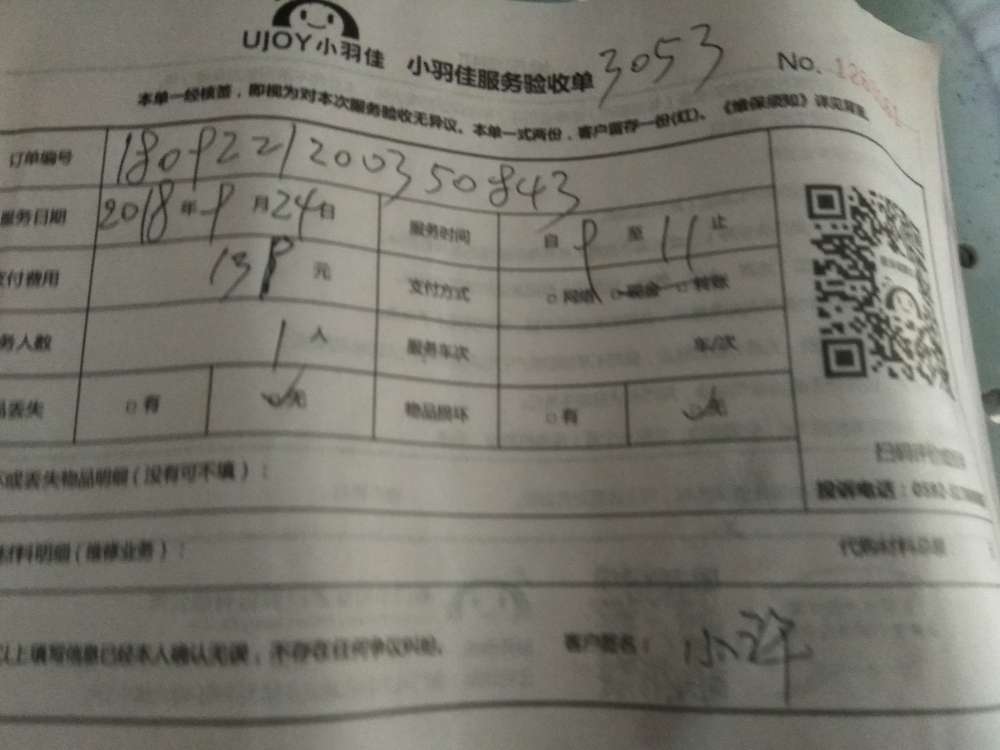 UJOY小羽佳 小羽佳服务验收单 3053 No.
本单一经核签，即视为对本次服务验收无异议。本单一式两份，客户留存一份(红)。《维保须知》详见背面
订单编号 1809221200350843
服务日期 2018年9月24日 服务时间 自9至11止
支付费用 139元 支付方式 网络 现金 转账
务人数 1人 服务车次 车/次
品丢失 有 无 物品损坏 有 无
坏或丢失物品明细(没有可不填)：
扫码评价
投诉电话：0592-
材料明细(维修业务)： 代购材料总额
以上填写信息已经本人确认无误，不存在任何争议纠纷。 客户签名：小许